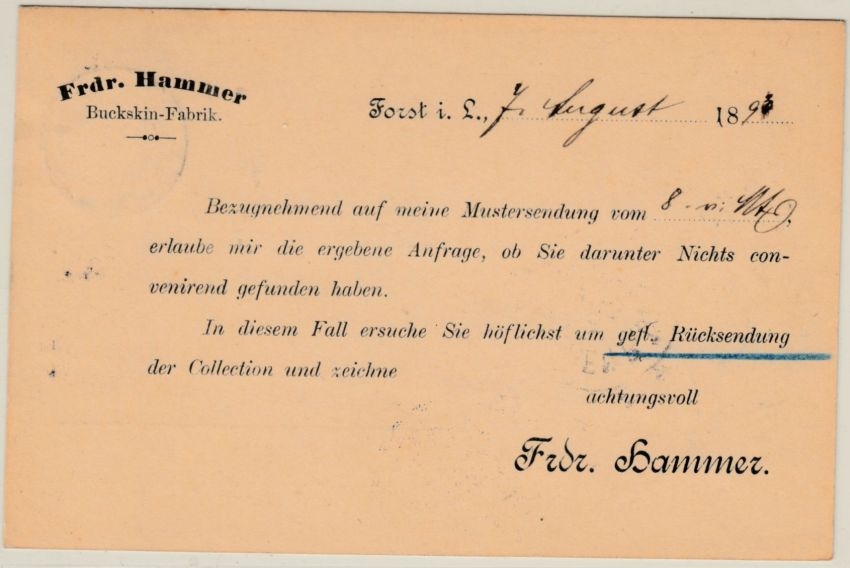 Frdr. Hammer
Buckskin-Fabrik.
Forst i. L., 7. August 1893
Bezugnehmend auf meine Mustersendung vom 8.
erlaube mir die ergebene Anfrage, ob Sie darunter Nichts con-
venirend gefunden haben.
In diesem Fall ersuche Sie höflichst um gefl. Rücksendung
der Collection und zeichne
achtungsvoll
Frdr. Hammer.